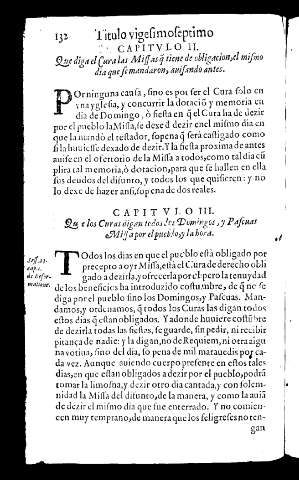 132 Titulo vigesimoseptimo
CAPITVLO II.
Que diga el Cura las Missas q̃ tiene de obligacion, el mismo
dia que se mandaron, auisando antes.
POr ninguna causa, sino es por ser el Cura solo en
vna yglesia, y concurrir la dotaciõ y memoria en
dia de Domingo, ò fiesta en q̃ el Cura ha de dezir
por el pueblo la Missa, se dexe d̃ dezir en el mismo dia en
que la mandò el testador, so pena q̃ serà castigado como
si la huuiesse dexado de dezir. Y la fiesta proxima de antes
auise en el ofertorio de la Missa a todos, como tal dia cũ
plira tal memoria, ò dotacion, para que se hallen en ella
los deudos del difunto, y todos los que quisieren: y no
lo dexe de hazer assi, so pena de dos reales.
CAPITVLO III.
Que los Curas digan todos los Domingos, y Pascuas
Missa por el pueblo, y la hora.
TOdos los dias en que el pueblo està obligado por
precepto a oyr Missa, està el Cura de derecho obli
gado a dezirla, y ofrecerla por el: pero la tenuydad
de los beneficios ha introduzido costũbre, de q̃ no se
diga por el pueblo sino los Domingos, y Pascuas. Man-
damos, y ordenamos, q̃ todos los Curas las digan todos
estos dias q̃ estan obligados. Y adonde huuiere costũbre
de dezirla todas las fiestas, se guarde, sin pedir, ni recibir
pitança de nadie: y la digan, no de Requiem, ni otra algu
na votiua, sino del dia, so pena de mil marauedis por ca-
da vez. Aunque auiendo cuerpo presente en estos tales
dias, en que estan obligados a dezir por el pueblo, podrã
tomar la limosna, y dezir otro dia cantada, y con solem-
nidad la Missa del difunto, de la manera, y como la auiã
de dezir el mismo dia que fue enterrado. Y no comien-
cen muy temprano, de manera que los feligreses no ten-
gan